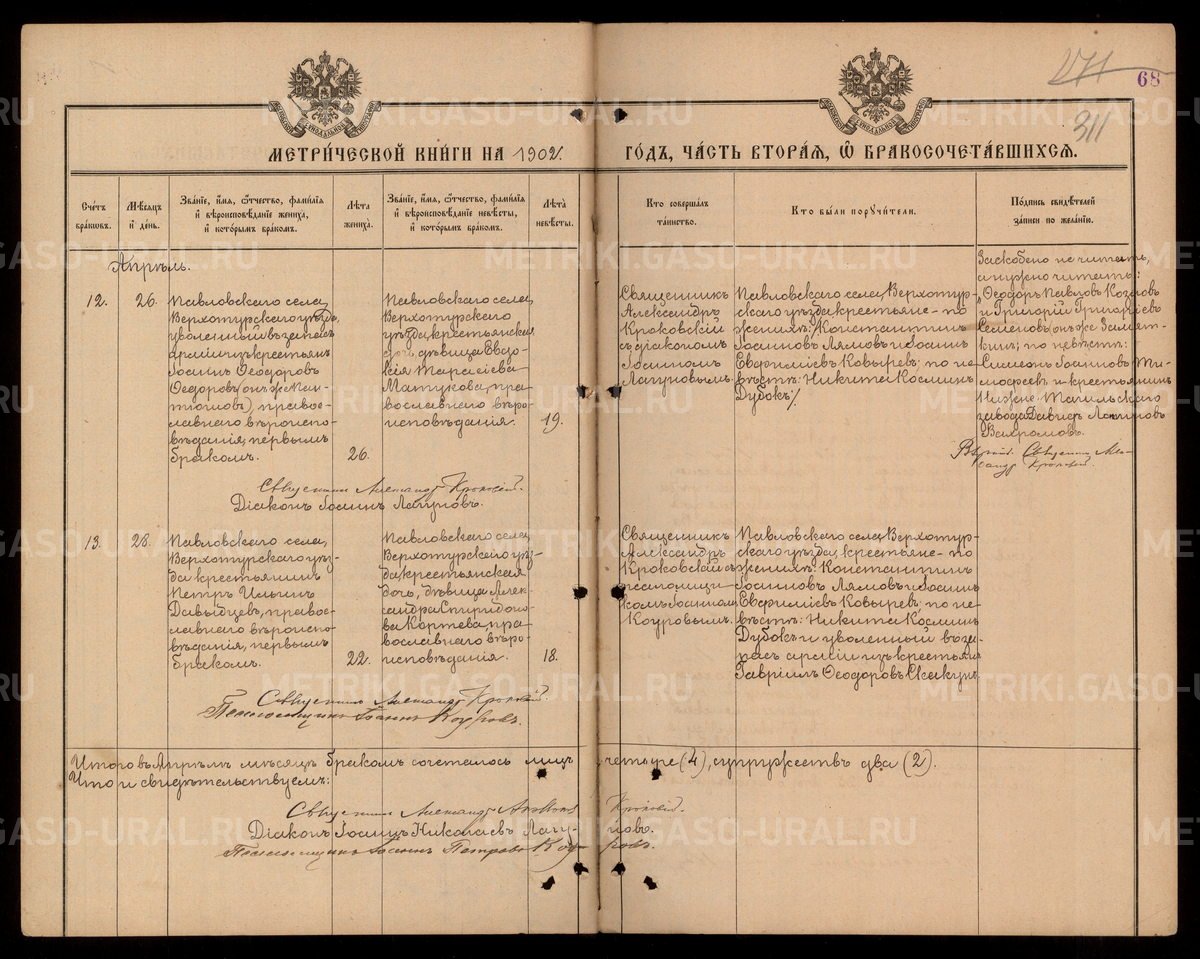 68
311
МЕТРИ́ЧЕСКОЙ КНИ́ГИ НА 1902 ГО́ДЪ, ЧА́СТЬ ВТОРА́Я, Ѡ БРАКОСОЧЕТА́ВШИХСЯ.
Сче́тъ
бра́ковъ.
Мѣ́сяцъ
и́ де́нь.
Зва́нїе, и́мя, о́тчество, фами́лїя
и́ вѣроисповѣ́данїе жениха̀,
и́ кото́рымъ бра́комъ.
Лѣ́та
жениха̀.
Зва́нїе, и́мя, о́тчество, фами́лїя
и́ вѣроисповѣ́данїе невѣ́сты,
и́ кото́рымъ бра́комъ.
Лѣ́та
невѣ́сты.
Кто соверша́лъ
та́инство.
Кто бы́ли поручи́тели.
По́дпись свидѣ́телей
за́писи по жела́нїю.
Апрѣль.
12.
26.
Павловскаго села,
Верхотурскаго уѣзда,
уволенный въ запасъ
армiи изъ крестьянъ
Іоаннъ Ѳеодоровъ
Ѳедоровъ (онъ же
), правос-
лавнаго вѣроиспо-
вѣданія, первымъ
бракомъ.
26.
Павловскаго села,
Верхотурскаго
уѣзда, крестьянская
дочь, дѣвица Евдо-
кія Тарасіева
Матукова, пра-
вославнаго вѣро-
исповѣданія.
19.
Священникъ
Александръ
Кроковскій
съ діакономъ
Іоанномъ
Лагуновымъ
Павловскаго села, Верхотур-
скаго уѣзда, крестьяне - по
женихѣ: Константинъ
Іоанновъ Лямовъ и Іоаннъ
Евфиміевъ Ковыревъ; по не-
вѣстѣ: Никита Косминъ
Дубокъ/.
Заскобено не читать,
а нужно читать:
"Ѳеодоръ Павловъ Козловъ
и Григорій Григорьевъ
Семеновъ (онъ же Замят-
кинъ; по невѣстѣ:
Симеонъ Іоанновъ Ти-
мофеевъ и крестьянинъ
Нижне-Тагильскаго
завода Давидъ
Вахромовъ.
Священникъ Але-
ксандръ Кроковскій.
Священникъ Александръ Кроковскій.
Діаконъ Іоаннъ Лагуновъ.
13.
28.
Павловскаго села,
Верхотурскаго уѣз-
да, крестьянинъ
Петръ Ильинъ
Давыдцевъ, право-
славнаго вѣроиспо-
вѣданія, первымъ
бракомъ.
22.
Павловскаго села,
Верхотурскаго уѣз-
да, крестьянская
дочь, дѣвица Алек-
сандра Спиридоно-
ва Картева, пра-
вославнаго вѣро-
исповѣданія.
18.
Священникъ
Александръ
Кроковскій съ
псаломщи-
комъ Іоанномъ
Коуровымъ.
Павловскаго села, Верхотур-
скаго уѣзда, крестьяне - по
женихѣ: Константинъ
Іоанновъ Лямовъ и Іоаннъ
Евфиміевъ Ковыревъ; по не-
вѣстѣ: Никита Косминъ
Дубокъ и уволенный въ за-
пасъ арміи изъ крестьянъ
Гавріилъ Ѳеодоровъ Скакунъ
Священникъ Александръ Кроковскій
Псаломщикъ Іоаннъ Коуровъ.
Итого въ Апрѣлѣ мѣсяцѣ бракомъ сочеталось лицъ четыре (4), супружествъ два (2).
Что и свидѣтельствуемъ:
Священникъ Александръ Кроковскій.
Діаконъ Іоаннъ Николаевъ Лагуновъ.
Псаломщикъ Іоаннъ Петровъ Коуровъ.
METRIKI.GASO-URAL.RU